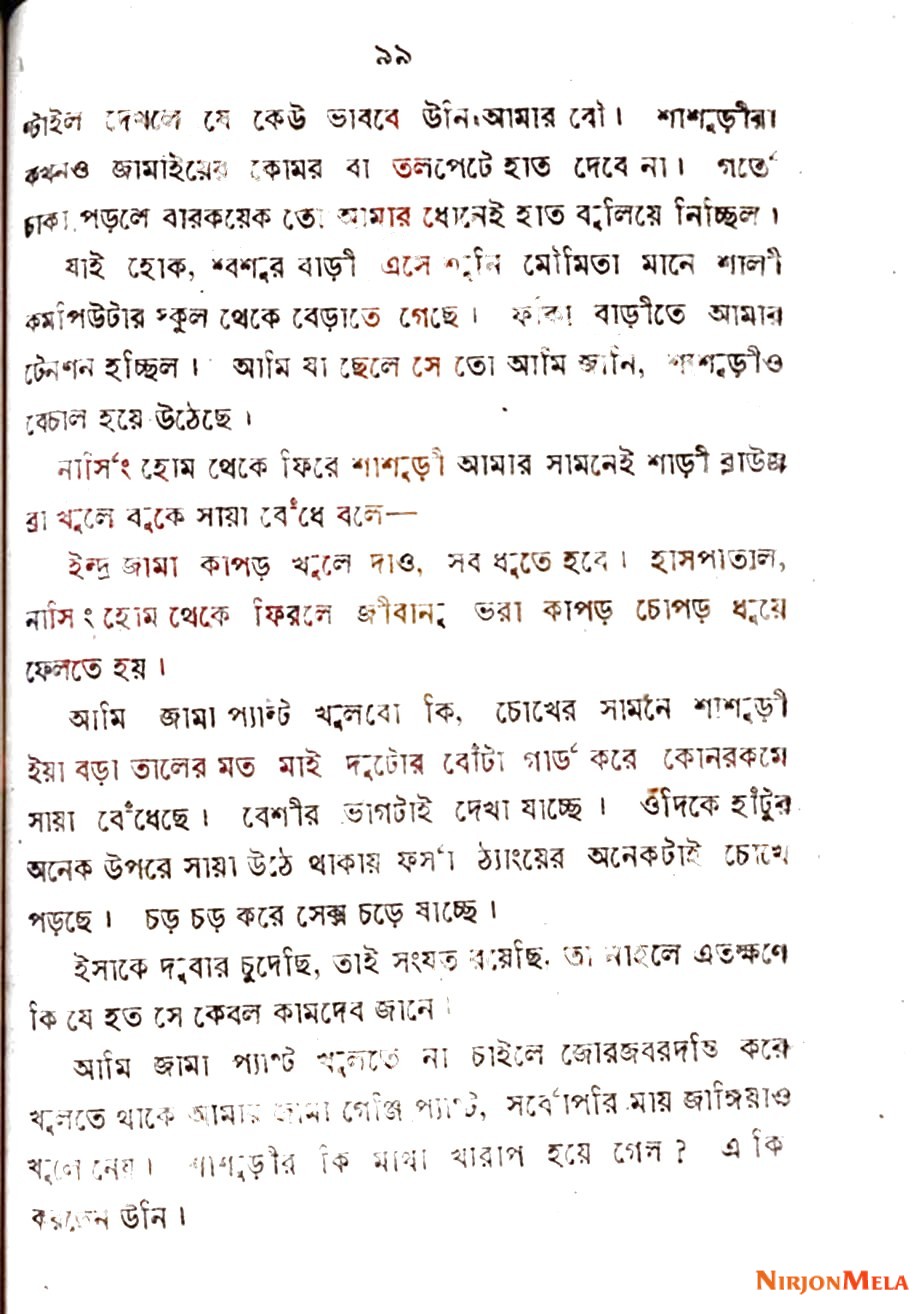 ৯৯
ষ্টাইল দেখলে যে কেউ ভাববে উনি আমার বৌ। শাশুড়ীরা
কখনও জামাইয়ের কোমর বা তলপেটে হাত দেবে না। গর্তে
চাকা পড়লে বারকয়েক তো আমার ধোনেই হাত বুলিয়ে নিচ্ছিল।
যাই হোক, শ্বশুর বাড়ী এসে শুনি মৌমিতা মানে শালী
কমপিউটার স্কুল থেকে বেড়াতে গেছে। ফাঁকা বাড়ীতে আমার
টেনশন হচ্ছিল। আমি যা ছেলে সে তো আমি জানি, শাশুড়ীও
বেচাল হয়ে উঠেছে।
নার্সিং হোম থেকে ফিরে শাশুড়ী আমার সামনেই শাড়ী ব্লাউজ
ব্রা খুলে বুকে সায়া বেঁধে বলে—
ইন্দ্র জামা কাপড় খুলে দাও, সব ধুতে হবে। হাসপাতাল,
নার্সিং হোম থেকে ফিরলে জীবানু ভরা কাপড় চোপড় ধুয়ে
ফেলতে হয়।
আমি জামা প্যান্ট খুলবো কি, চোখের সামনে শাশুড়ী
ইয়া বড়া তালের মত মাই দুটোর বোঁটা গার্ড করে কোনরকমে
সায়া বেঁধেছে। বেশীর ভাগটাই দেখা যাচ্ছে। ওদিকে হাঁটুর
অনেক উপরে সায়া উঠে থাকায় ফর্সা ঠ্যাংয়ের অনেকটাই চোখে
পড়ছে। চড় চড় করে সেক্স চড়ে যাচ্ছে।
ইসাকে দুবার চুদেছি, তাই সংযত রয়েছি. তা নাহলে এতক্ষণে
কি যে হত সে কেবল কামদেব জানে।
আমি জামা প্যান্ট খুলতে না চাইলে জোরজবরদস্তি করে
খুলতে থাকে আমার জামা গেঞ্জি প্যান্ট, সর্বোপরি মায় জাঙ্গিয়াও
খুলে নেয়। শাশুড়ীর কি মাথা খারাপ হয়ে গেল? এ কি
করছেন উনি।
NIRJONMELA